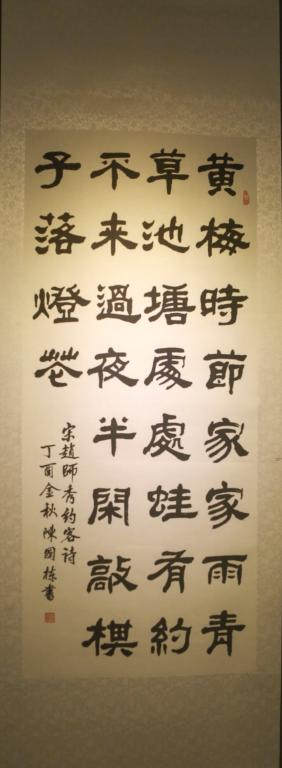 黄梅時節家家雨青
草池塘處處蛙有約
不来過夜半閑敲棋
子落燈花
宋趙師秀約客詩
丁酉金秋陳國棟書